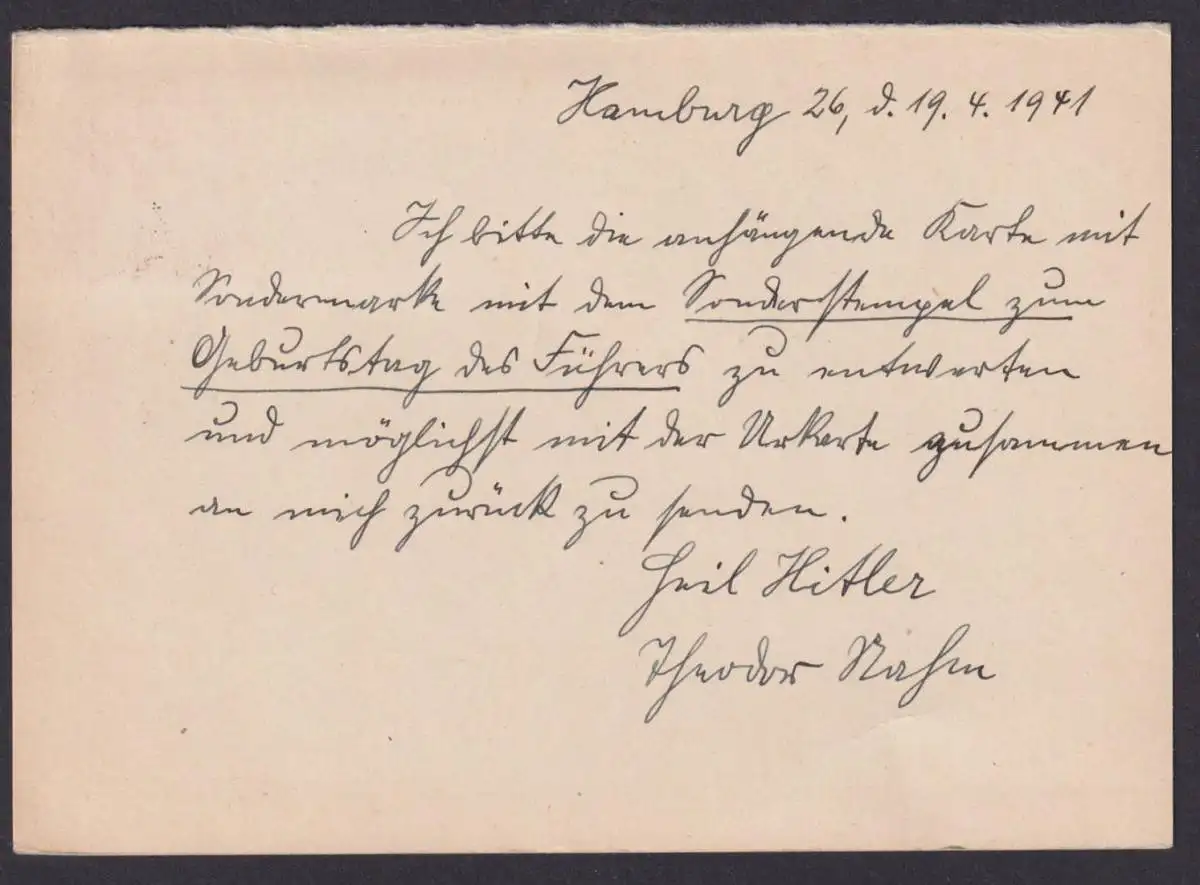 Hamburg 26, d. 19. 4. 1941
Ich bitte die anhängende Karte mit
Sondermarke mit dem Sonderstempel zum
Geburtstag des Führers zu entwerten
und möglichst mit der Urkarte zusammen
an mich zurück zu senden.
Heil Hitler
Theodor Nahm